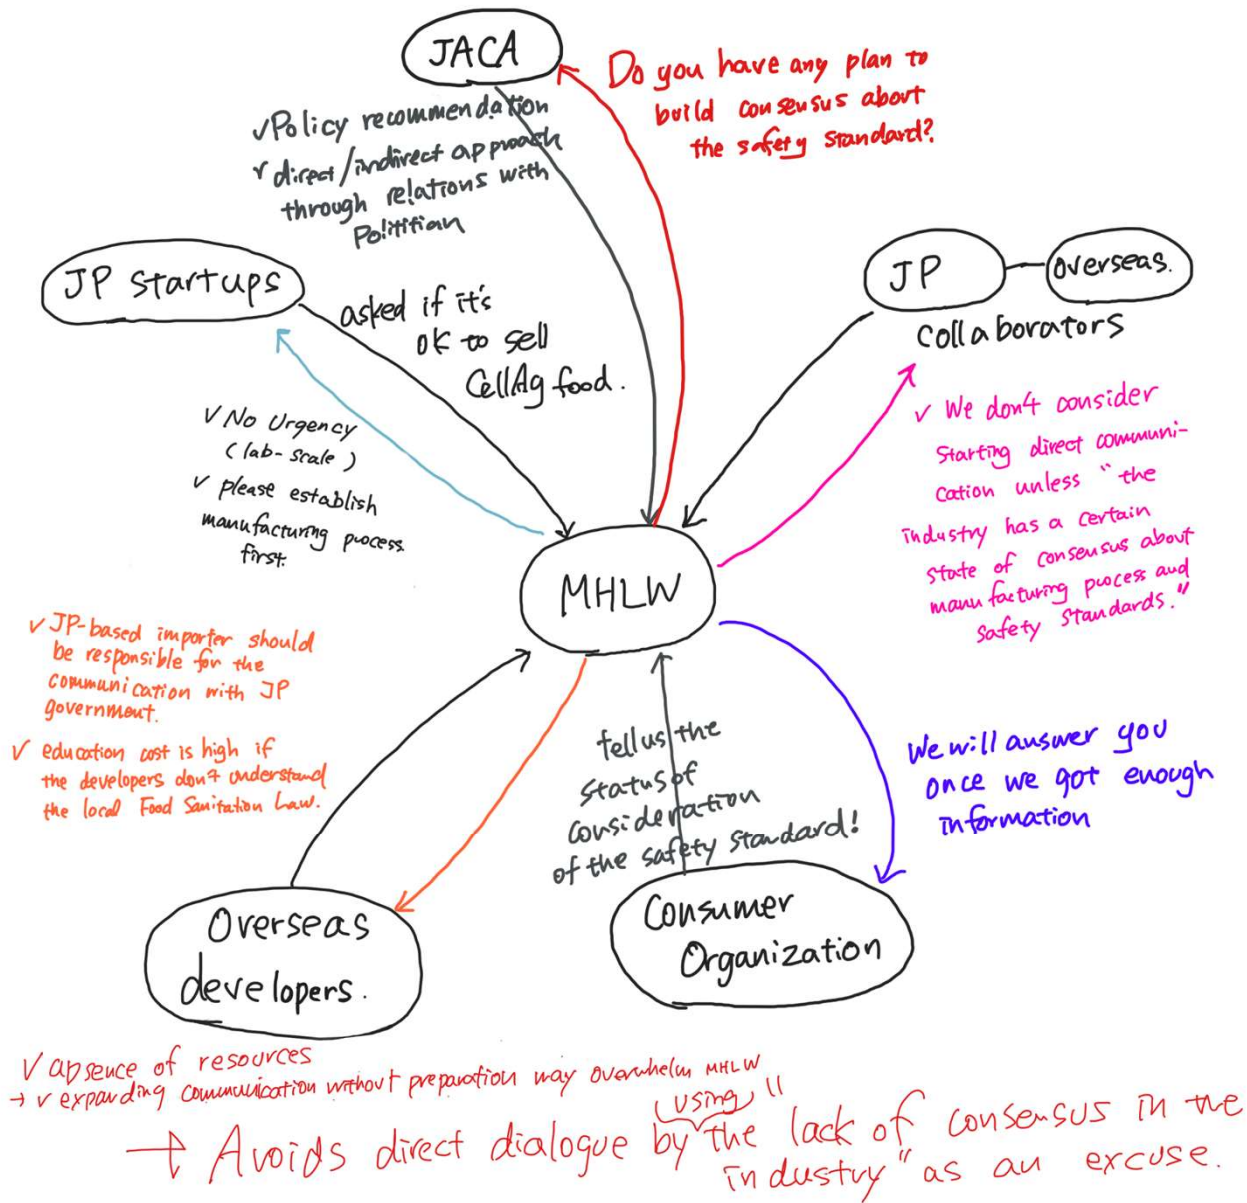 JACA
Do you have any plan to
build consensus about
the safety standard?
✓Policy recommendation
✓direct/indirect approach
through relations with
Polititian
JP startups
asked if it's
OK to sell
CellAg food.
JP
overseas.
collaborators
✓ No Urgency
(lab-scale)
✓ please establish
manufacturing process
first.
✓ We don't consider
starting direct communi-
cation unless "the
industry has a certain
state of consensus about
manufacturing process and
safety standards."
MHLW
✓ JP-based importer should
be responsible for the
communication with JP
government.
✓ education cost is high if
the developers don't understand
the local Food Sanitation Law.
tell us the
status of
consideration
of the safety standard!
We will answer you
once we got enough
information
Overseas
developers.
Consumer
Organization
✓ absence of resources
→ ✓ expanding communication without preparation may overwhelm MHLW
→ Avoids direct dialogue by (using) "the lack of consensus in the
industry" as an excuse.